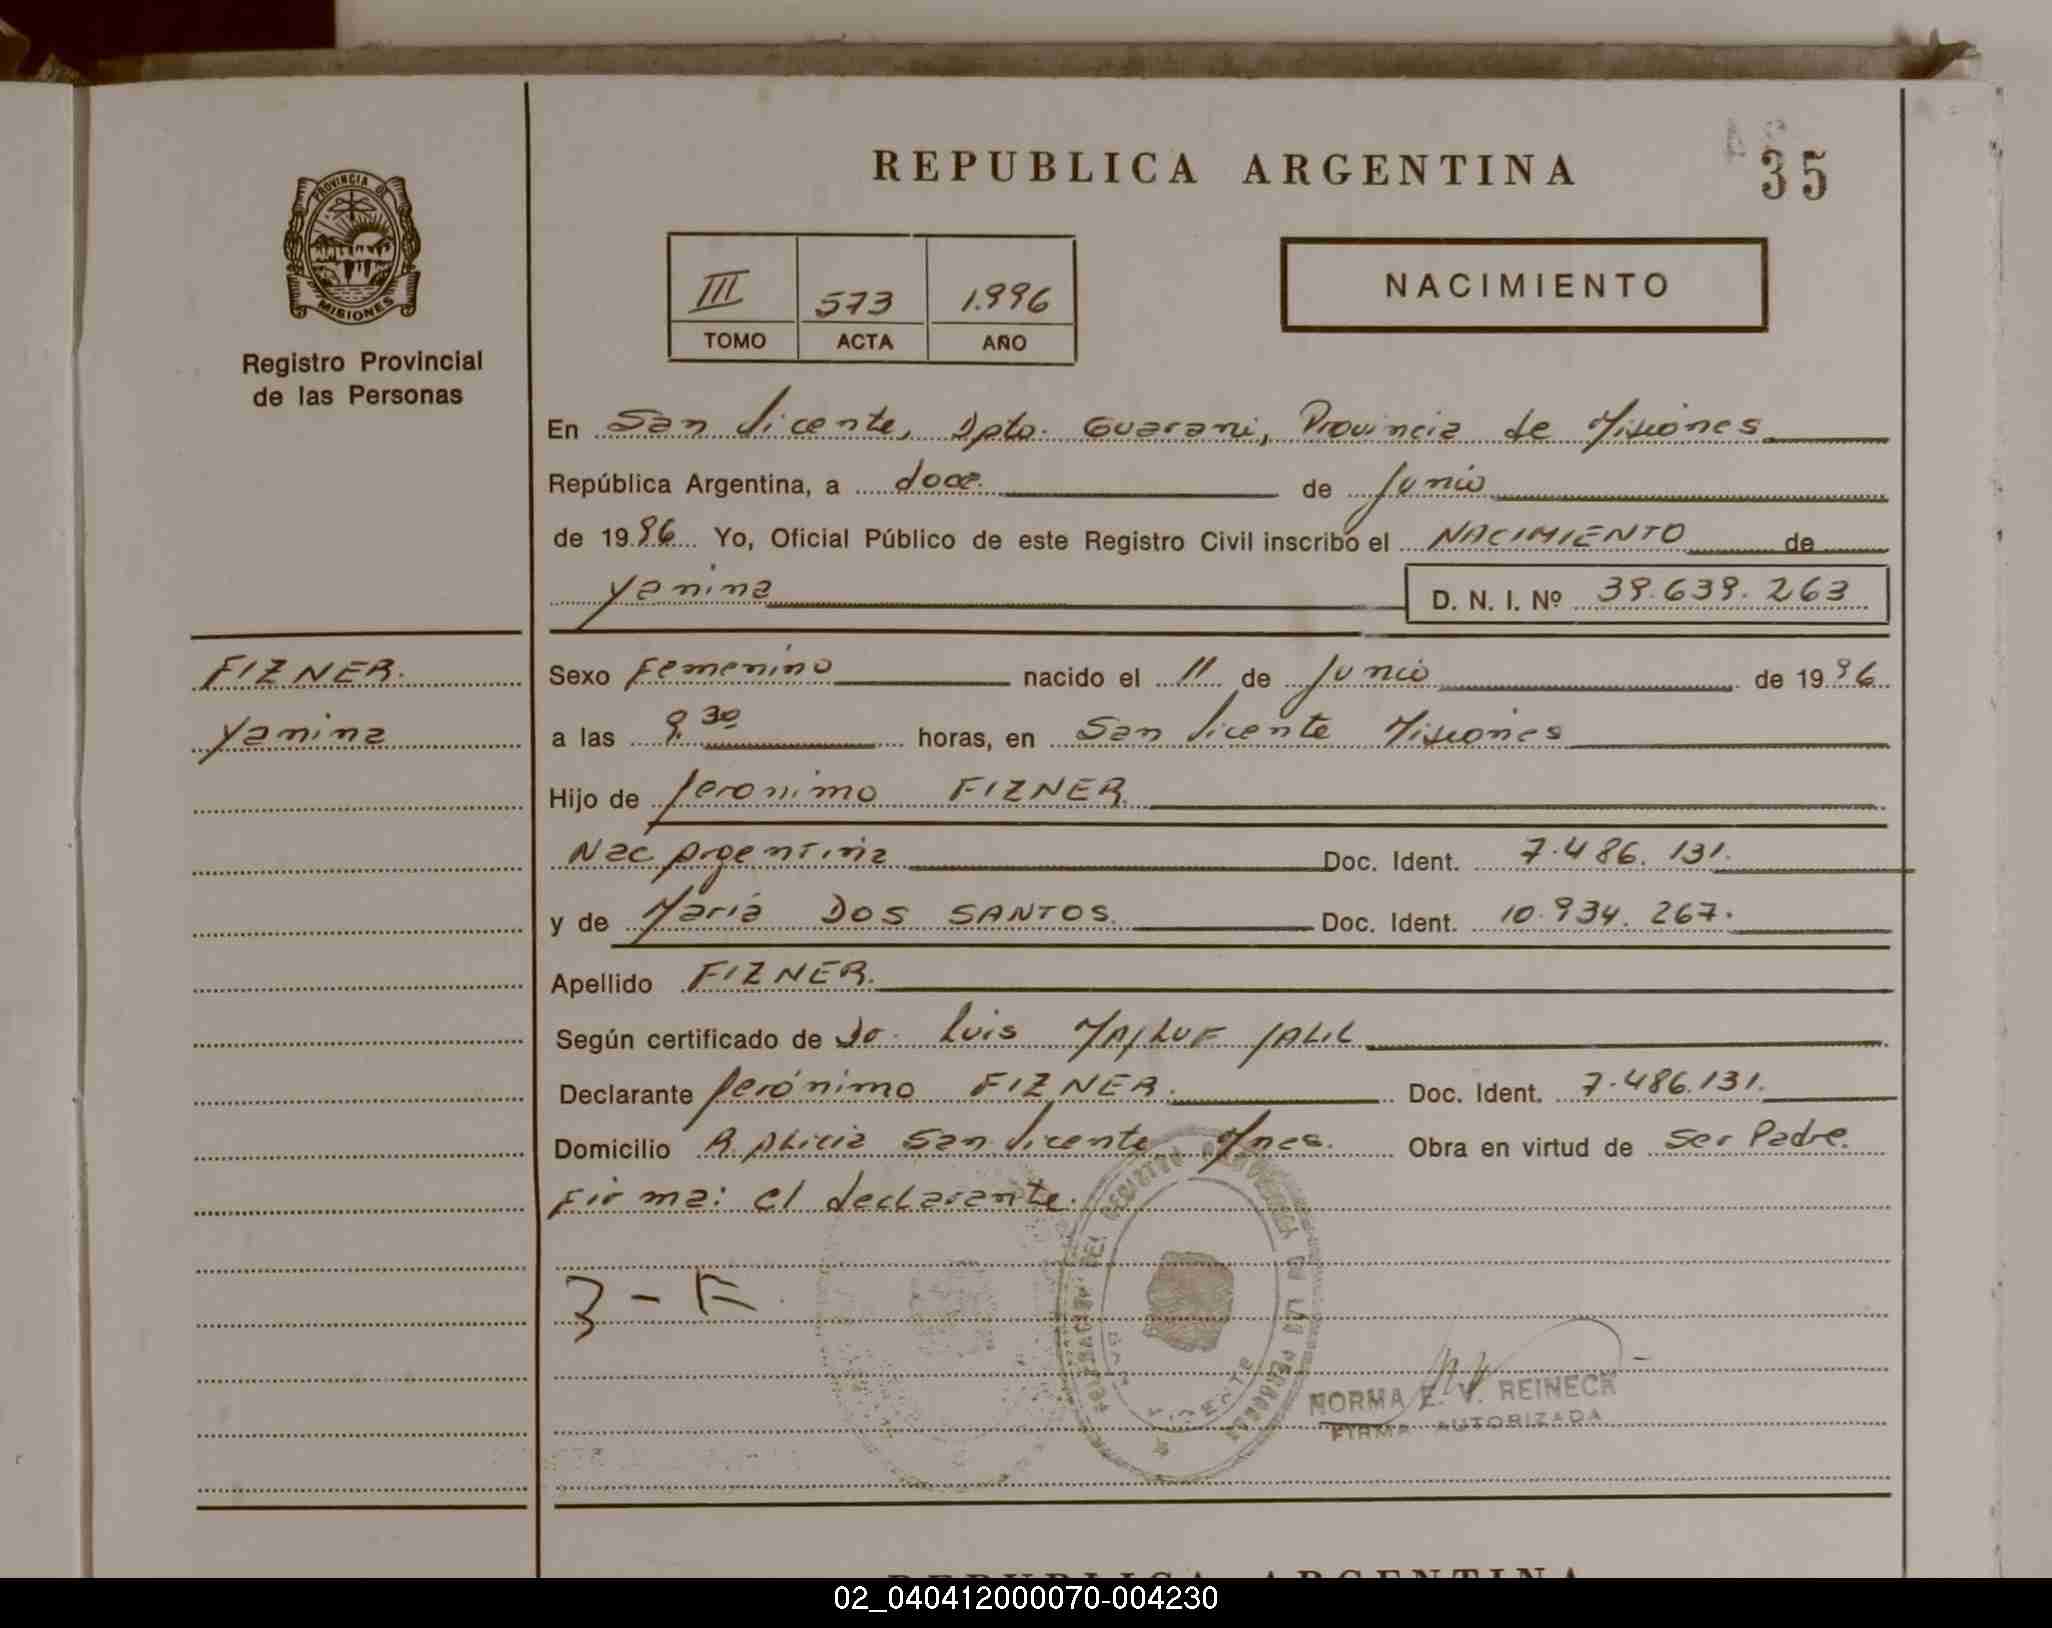 REPUBLICA ARGENTINA
35
PROVINCIA DE
MISIONES
Registro Provincial
de las Personas
III 573 1.996
TOMO ACTA AÑO
NACIMIENTO
En San Vicente, Dpto. Guarani, Provincia de Misiones
República Argentina, a doce. de Junio
de 1996 Yo, Oficial Público de este Registro Civil inscribo el NACIMIENTO de
Yanina D. N. I. Nº 39.639.263
FIZNER.
Yanina
Sexo Femenino nacido el 11 de Junio de 1996
a las 9,30 horas, en San Vicente Misiones
Hijo de Jeronimo FIZNER
Nac Argentina Doc. Ident. 7.486.131.
y de Maria DOS SANTOS. Doc. Ident. 10.934.267.
Apellido FIZNER.
Según certificado de Dr. Luis MAJLUF JALIL
Declarante Jerónimo FIZNER. Doc. Ident. 7.486.131.
Domicilio B. Alicia San Vicente Mnes. Obra en virtud de Ser Padre.
Firma: el declarante.
3-F
NORMA E. V. REINECK
FIRMA AUTORIZADA
REPUBLICA ARGENTINA
02_040412000070-004230